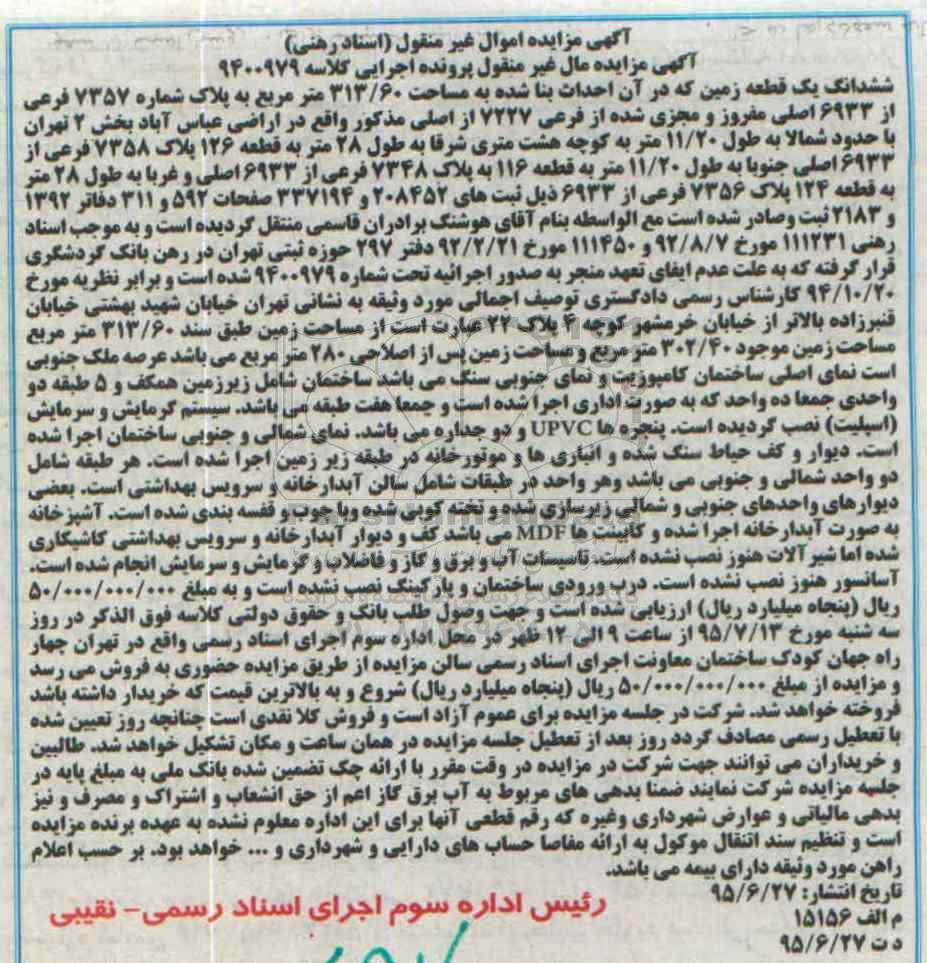 آگهی مزایده اموال غیر منقول (اسناد رهنی)
آگهی مزایده مال غیر منقول پرونده اجرایی کلاسه ۹۴۰۰۹۷۹
ششدانگ یک قطعه زمین که در آن احداث بنا شده به مساحت ۳۱۳/۶۰ متر مربع به پلاک شماره ۷۳۵۷ فرعی
از ۶۹۳۳ اصلی مفروز و مجزی شده از فرعی ۷۲۲۷ از اصلی مذکور واقع در اراضی عباس آباد بخش ۲ تهران
با حدود شمالا به طول ۱۱/۲۰ متر به کوچه هشت متری شرقا به طول ۲۸ متر به قطعه ۱۲۶ پلاک ۷۳۵۸ فرعی از
۶۹۳۳ اصلی جنوبا به طول ۱۱/۲۰ متر به قطعه ۱۱۶ به پلاک ۷۳۴۸ فرعی از ۶۹۳۳ اصلی و غربا به طول ۲۸ متر
به قطعه ۱۲۴ پلاک ۷۳۵۶ فرعی از ۶۹۳۳ ذیل ثبت های ۲۰۸۴۵۲ و ۳۳۷۱۹۴ صفحات ۵۹۲ و ۳۱۱ دفاتر ۱۳۹۲
و ۲۱۸۳ ثبت وصادر شده است مع الواسطه بنام آقای هوشنگ برادران قاسمی منتقل گردیده است و به موجب اسناد
رهنی ۱۱۱۲۳۱ مورخ ۹۲/۸/۷ و ۱۱۱۴۵۰ مورخ ۹۲/۲/۲۱ دفتر ۲۹۷ حوزه ثبتی تهران در رهن بانک گردشگری
قرار گرفته که به علت عدم ایفای تعهد منجر به صدور اجرائیه تحت شماره ۹۴۰۰۹۷۹ شده است و برابر نظریه مورخ
۹۴/۱۰/۲۰ کارشناس رسمی دادگستری توصیف اجمالی مورد وثیقه به نشانی تهران خیابان شهید بهشتی خیابان
قنبرزاده بالاتر از خیابان خرمشهر کوچه ۴ پلاک ۲۲ عبارت است از مساحت زمین طبق سند ۳۱۳/۶۰ متر مربع
مساحت زمین موجود ۳۰۲/۴۰ متر مربع و مساحت زمین پس از اصلاحی ۲۸۰ متر مربع می باشد عرصه ملک جنوبی
است نمای اصلی ساختمان کامپوزیت و نمای جنوبی سنگ می باشد ساختمان شامل زیرزمین همکف و ۵ طبقه دو
واحدی جمعا ده واحد که به صورت اداری اجرا شده است و جمعا هفت طبقه می باشد. سیستم گرمایش و سرمایش
(اسپلیت) نصب گردیده است. پنجره ها UPVC و دو جداره می باشد. نمای شمالی و جنوبی ساختمان اجرا شده
است. دیوار و کف حیاط سنگ شده و انباری ها و موتورخانه در طبقه زیر زمین اجرا شده است. هر طبقه شامل
دو واحد شمالی و جنوبی می باشد وهر واحد در طبقات شامل سالن آبدارخانه و سرویس بهداشتی است. بعضی
دیوارهای واحدهای جنوبی و شمالی زیرسازی شده و تخته کوبی شده وبا چوب و قفسه بندی شده است. آشپزخانه
به صورت آبدارخانه اجرا شده و کابینت ها MDF می باشد کف و دیوار آبدارخانه و سرویس بهداشتی کاشیکاری
شده اما شیر آلات هنوز نصب نشده است. تاسیسات آب و برق و گاز و فاضلاب و گرمایش و سرمایش انجام شده است.
آسانسور هنوز نصب نشده است. درب ورودی ساختمان و پارکینگ نصب نشده است و به مبلغ ۵۰/۰۰۰/۰۰۰/۰۰۰
ریال (پنجاه میلیارد ریال) ارزیابی شده است و جهت وصول طلب بانک و حقوق دولتی کلاسه فوق الذکر در روز
سه شنبه مورخ ۹۵/۷/۱۳ از ساعت ۹ الی ۱۲ ظهر در محل اداره سوم اجرای اسناد رسمی واقع در تهران چهار
راه جهان کودک ساختمان معاونت اجرای اسناد رسمی سالن مزایده از طریق مزایده حضوری به فروش می رسد
و مزایده از مبلغ ۵۰/۰۰۰/۰۰۰/۰۰۰ ریال (پنجاه میلیارد ریال) شروع و به بالاترین قیمت که خریدار داشته باشد
فروخته خواهد شد. شرکت در جلسه مزایده برای عموم آزاد است و فروش کلا نقدی است چنانچه روز تعیین شده
با تعطیل رسمی مصادف گردد روز بعد از تعطیل جلسه مزایده در همان ساعت و مکان تشکیل خواهد شد. طالبین
و خریداران می توانند جهت شرکت در مزایده در وقت مقرر با ارائه چک تضمین شده بانک ملی به مبلغ پایه در
جلسه مزایده شرکت نمایند ضمنا بدهی های مربوط به آب برق گاز اعم از حق انشعاب و اشتراک و مصرف و نیز
بدهی مالیاتی و عوارض شهرداری وغیره که رقم قطعی آنها برای این اداره معلوم نشده به عهده برنده مزایده
است و تنظیم سند انتقال موکول به ارائه مفاصا حساب های دارایی و شهرداری و ... خواهد بود. بر حسب اعلام
راهن مورد وثیقه دارای بیمه می باشد.
تاریخ انتشار: ۹۵/۶/۲۷
م الف ۱۵۱۵۶
د ت ۹۵/۶/۲۷
رئیس اداره سوم اجرای اسناد رسمی- نقیبی